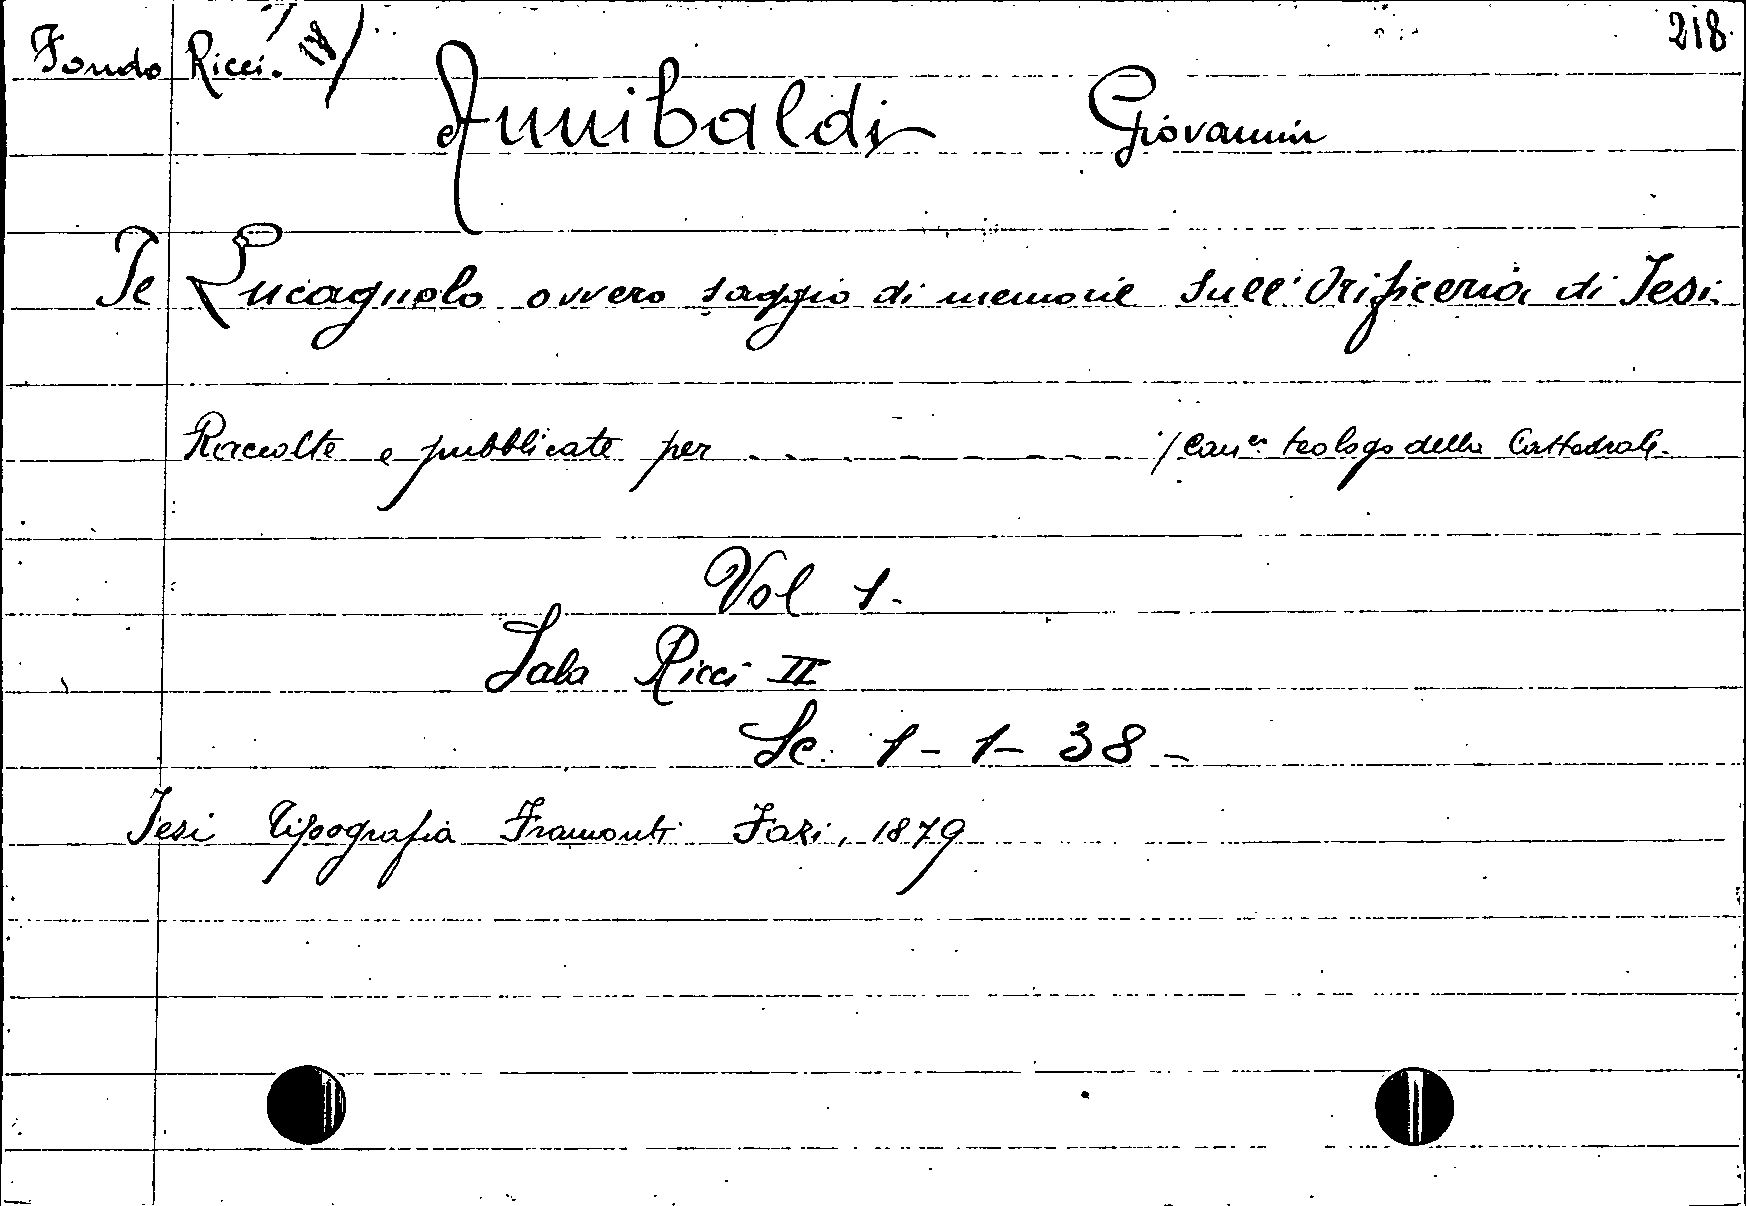 Fondo Ricci. 218.
Annibaldi Giovanni
Il Lucagnolo ovvero saggio di memorie sull'Orificeria di Jesi.
Raccolte e pubblicate per - - - - - - - - - /Canco teologo della Cattedrale.
Vol 1.
Sala Ricci II
Sc. 1 - 1 - 38 -
Jesi Tipografia Framonti Fazi, 1879